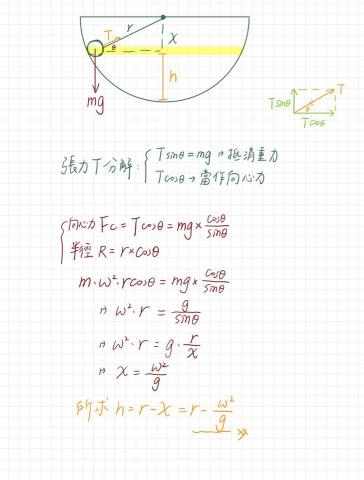 r
T
θ
x
h
mg
Tsinθ
T
θ
Tcosθ
張力T分解: { Tsinθ = mg → 抵消重力
Tcosθ → 當作向心力
{ 向心力 Fc = Tcosθ = mg × cosθ/sinθ
半徑 R = r × cosθ
m·ω²·rcosθ = mg × cosθ/sinθ
⇒ ω²·r = g/sinθ
⇒ ω²·r = g · r/x
⇒ x = ω²/g
所求 h = r - x = r - ω²/g